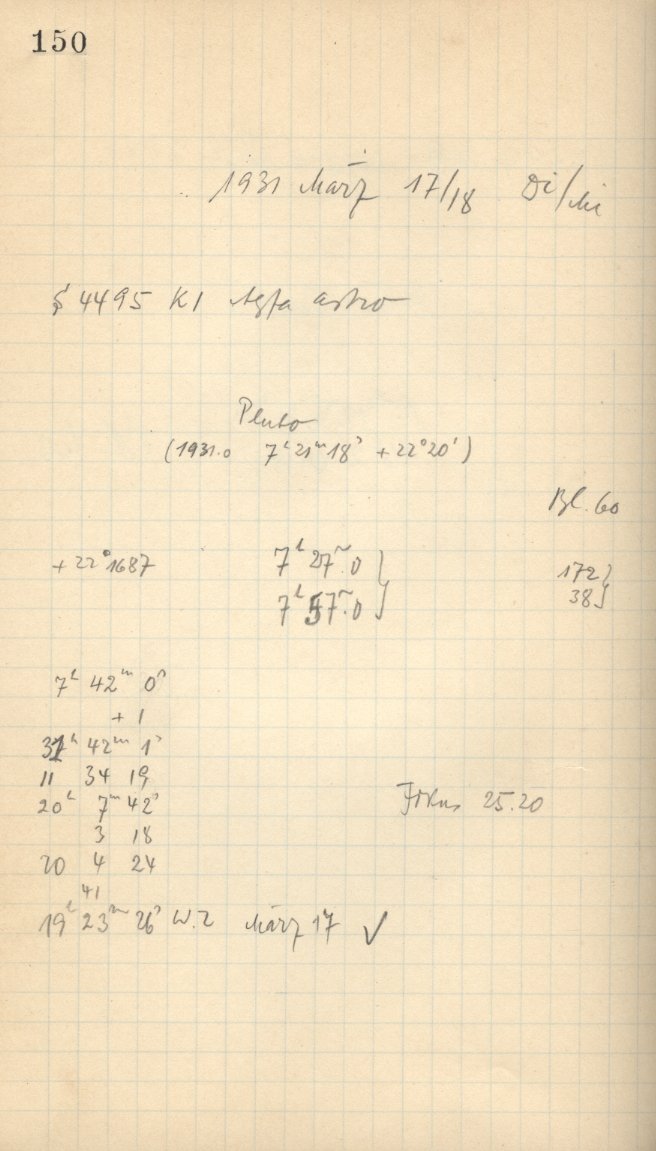 150
1931 März 17/18 Di/Mi
4495 KI Agfa astro
Pluto
(1931.0 7h 21m 18s +22°20')
Bl. 60
+22°1687 7h 27m.0 } 172 }
7h 57m.0 } 38 }
7h 42m 0s
+ 1
31h 42m 1s
11 34 19
20h 7m 42s Fokus 25.20
3 18
20 4 24
41
19h 23m 26s W.Z März 17 ✓